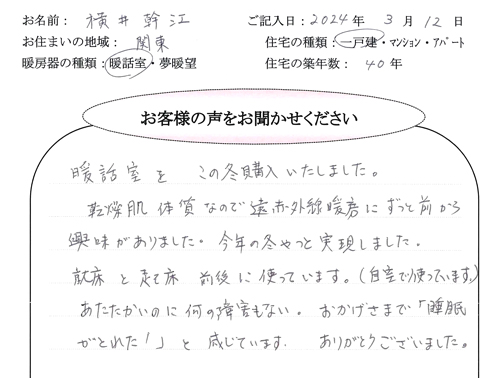 お名前： 横井幹江 ご記入日：2024年 3月 12日
お住まいの地域： 関東 住宅の種類：一戸建・マンション・アパート
暖房器の種類：暖話室・夢暖望 住宅の築年数： 40年
お客様の声をお聞かせください
暖話室を この冬購入いたしました。
乾燥肌体質なので遠赤外線暖房にずっと前から
興味がありました。今年の冬やっと実現しました。
就床と起床 前後に使っています。(自室で使っています)
あたたかいのに何の障害もない。おかげさまで「睡眠
がとれた！」と感じています ありがとうございました。